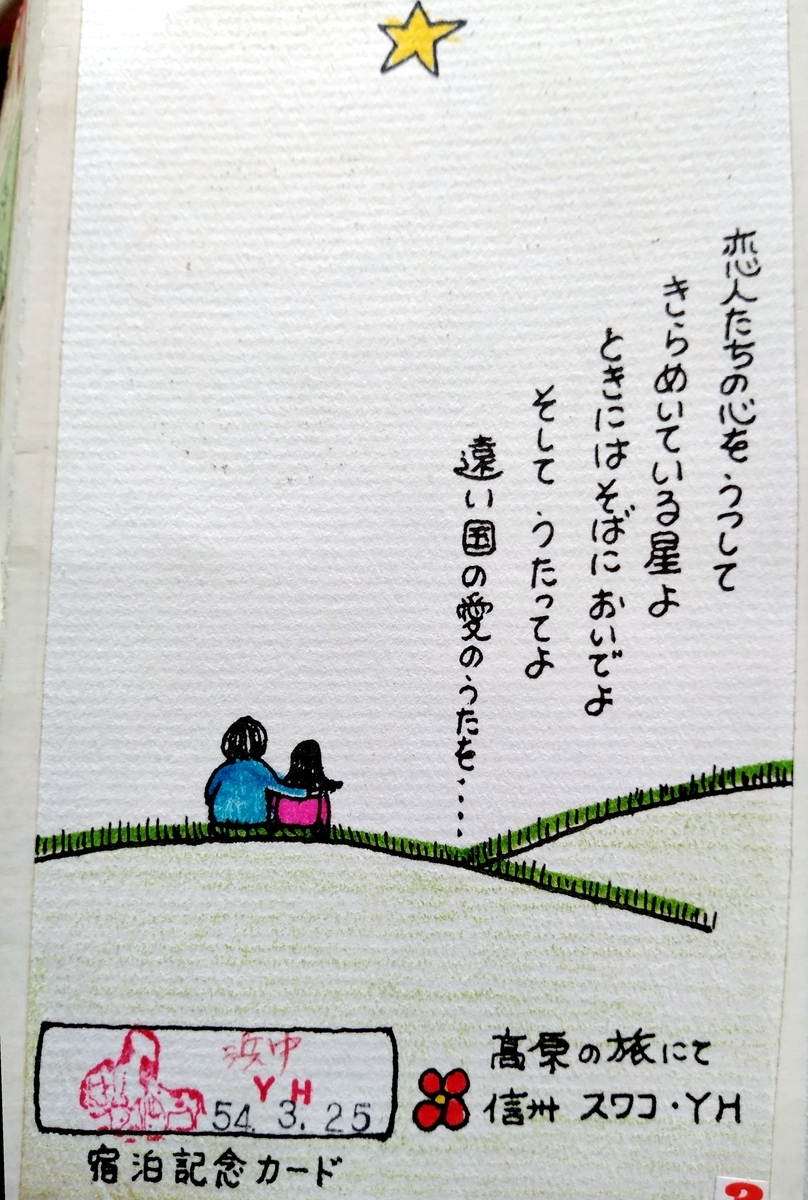 恋人たちの心を うつして
きらめいている星よ
ときにはそばに おいでよ
そして うたってよ
遠い国の愛のうたを・・・・
高原の旅にて
信州 スワコ・YH
浜中
YH
54. 3. 25
宿泊記念カード